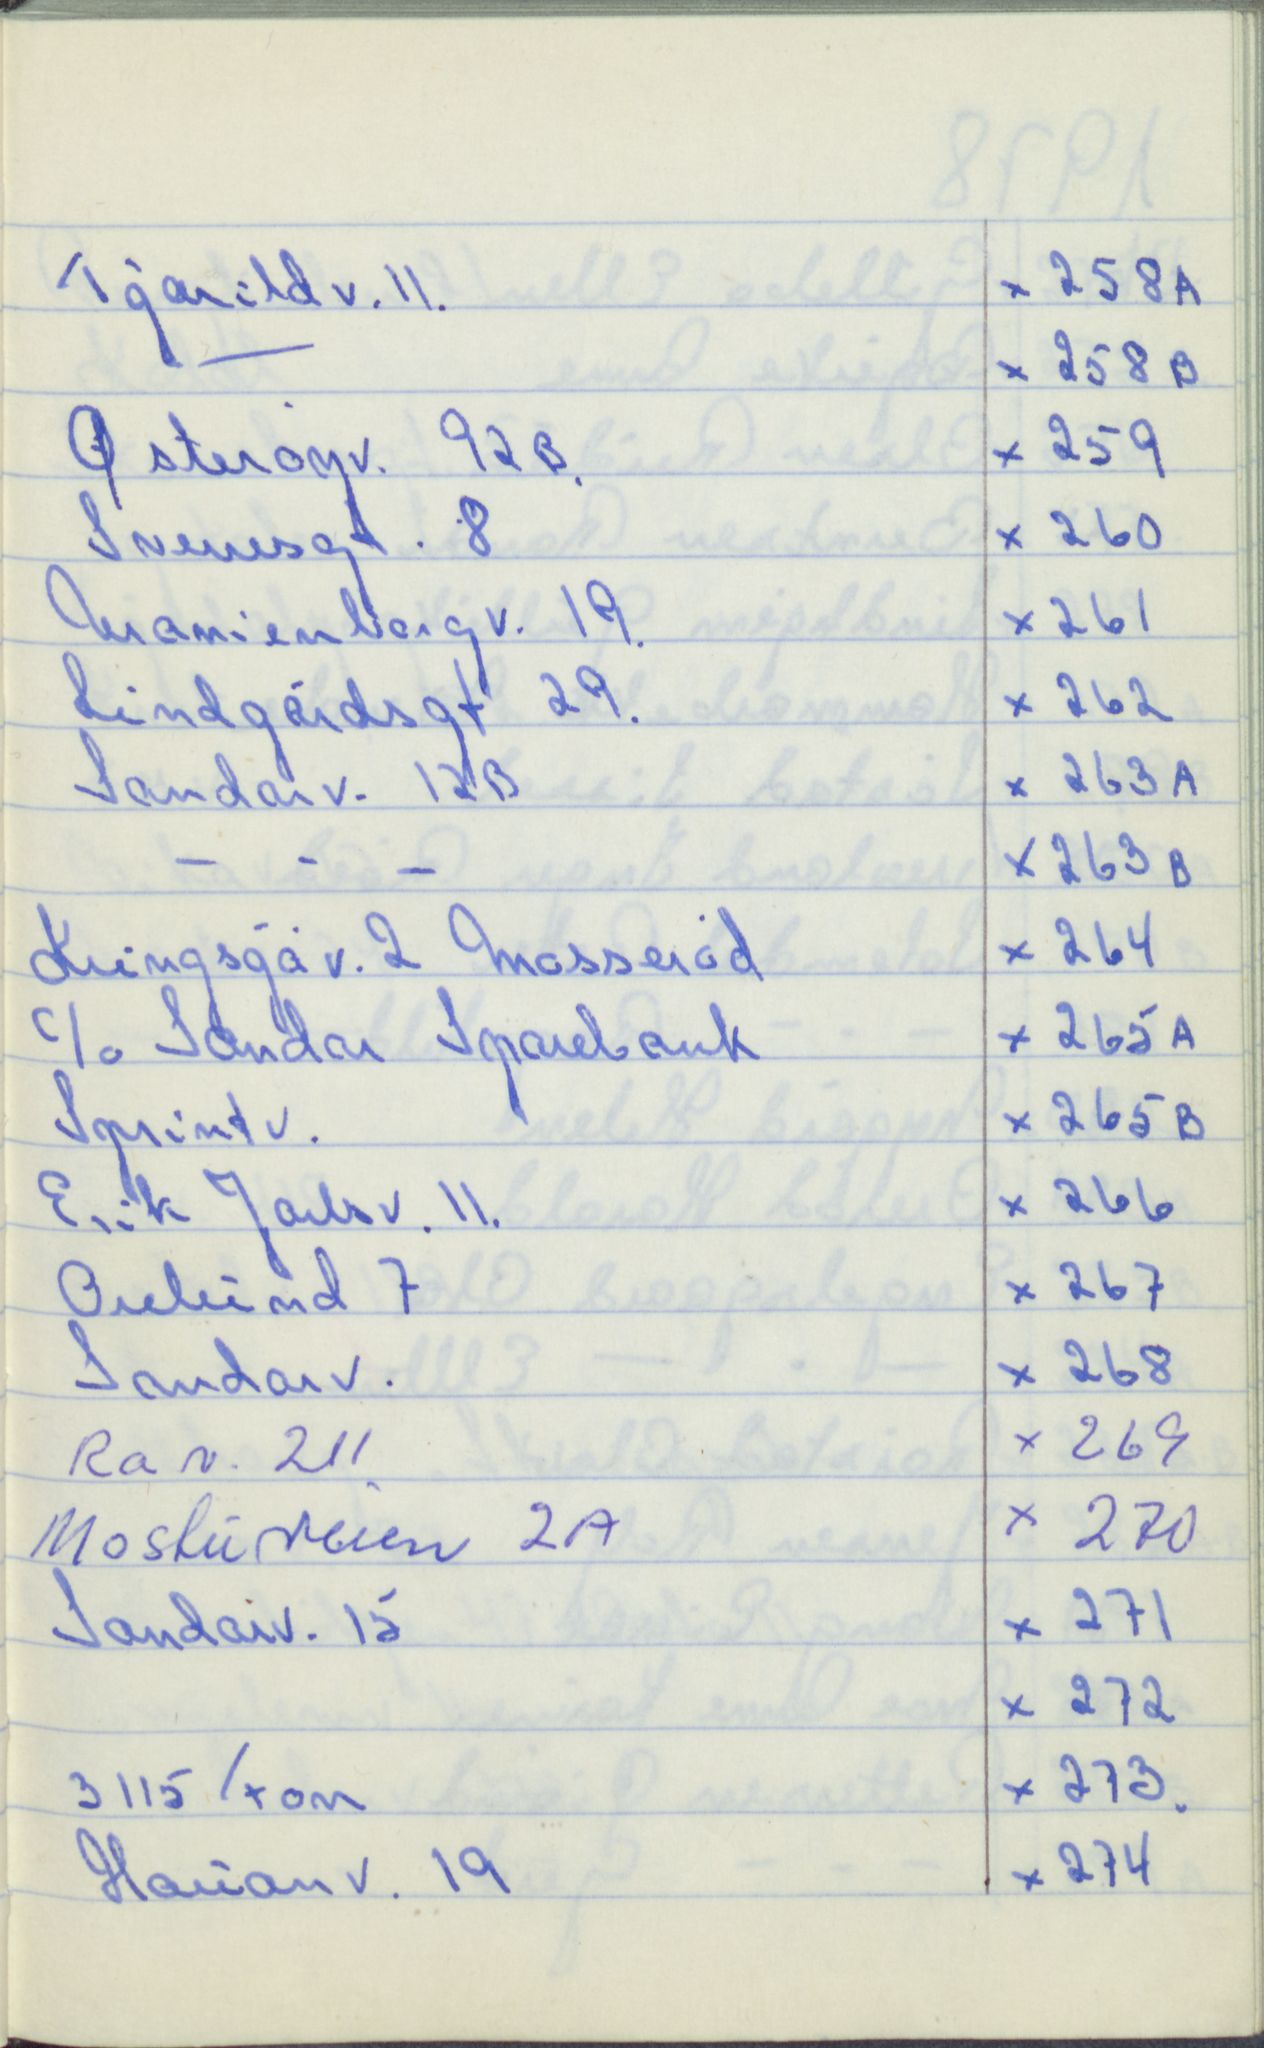 Tjarildv. 11. x 258A
— x 258B
Østerøyv. 92B. x 259
Sverresgt. 8 x 260
Uranienborgv. 19. x 261
Lindgårdsgt 29. x 262
Sandarv. 12B x 263A
— - — x 263B
Kringsjåv. 2 Mosserød x 264
c/o Sandar Sparebank x 265A
Sprintv. x 265B
Erik Jarlsv. 11. x 266
7 x 267
Sandarv. x 268
Rav. 211. x 269
2A x 270
Sandarv. 15 x 271
x 272
3115 /ton x 273.
v. 19 x 274